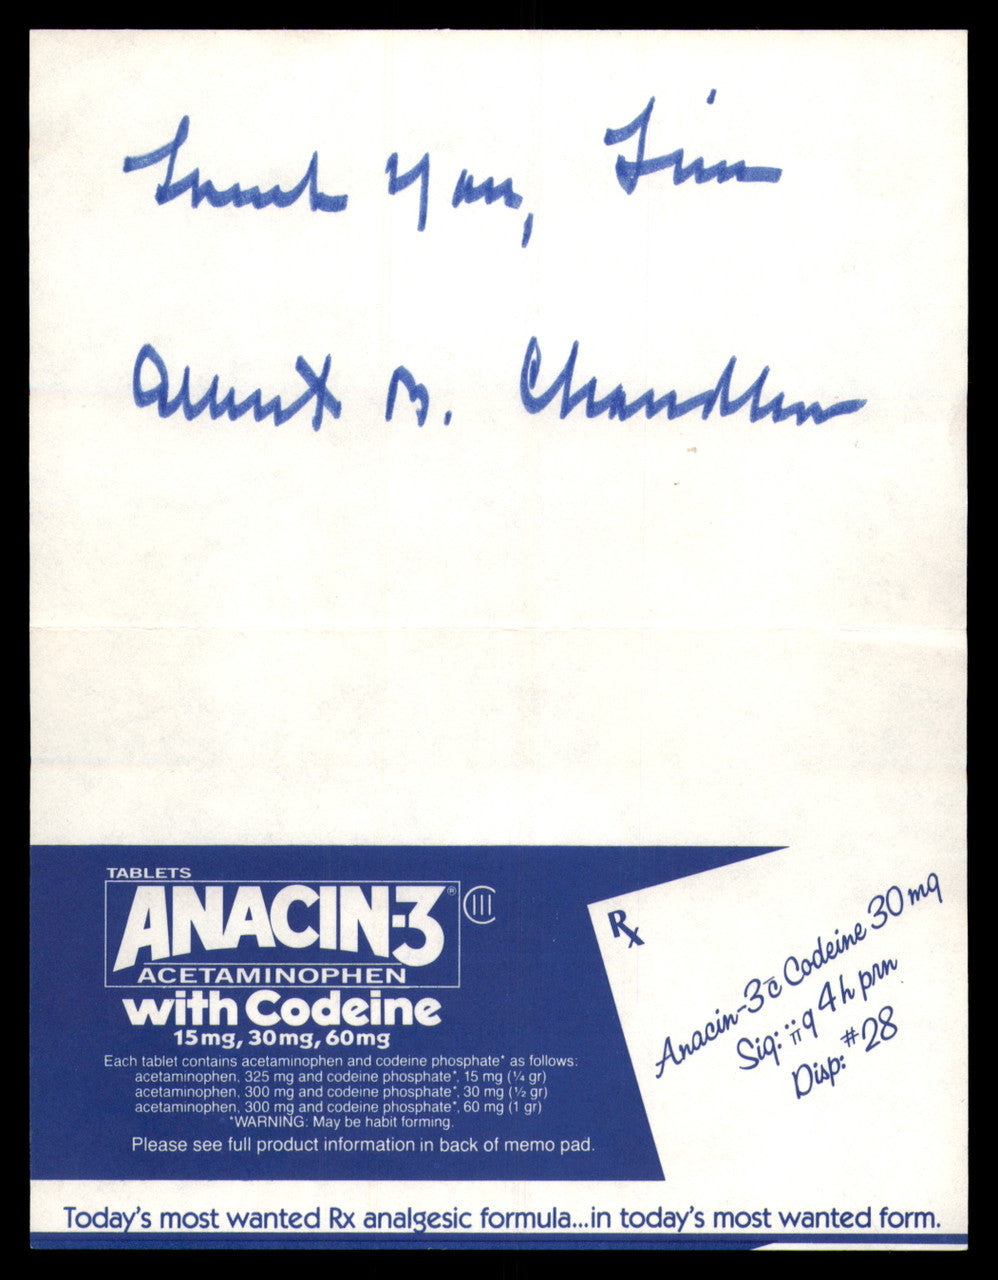 Thank you, Jim
Albert B. Chandler
TABLETS
ANACIN-3® CIII
ACETAMINOPHEN
with Codeine
15mg, 30mg, 60mg
Each tablet contains acetaminophen and codeine phosphate* as follows:
acetaminophen, 325 mg and codeine phosphate*, 15 mg (¼ gr)
acetaminophen, 300 mg and codeine phosphate*, 30 mg (½ gr)
acetaminophen, 300 mg and codeine phosphate*, 60 mg (1 gr)
*WARNING: May be habit forming.
Please see full product information in back of memo pad.
Rx
Anacin-3 c̄ Codeine 30 mg
Sig: ii q 4 h prn
Disp: #28
Today's most wanted Rx analgesic formula...in today's most wanted form.